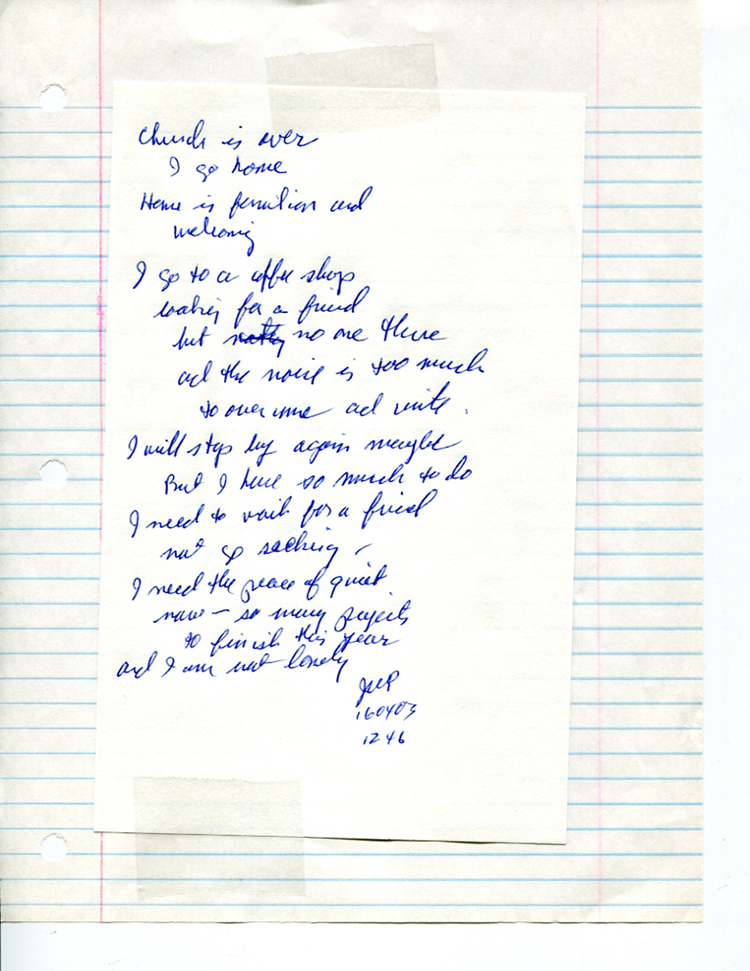 Church is over
I go home
Home is familiar and
welcoming
I go to a coffee shop
looking for a friend
but no one there
and the noise is too much
to overcome and write.
I will stop by again maybe
But I have so much to do
I need to wait for a friend
not go seeking
I need the peace of quiet
now – so many projects
to finish this year
and I am not lonely
160403
1246